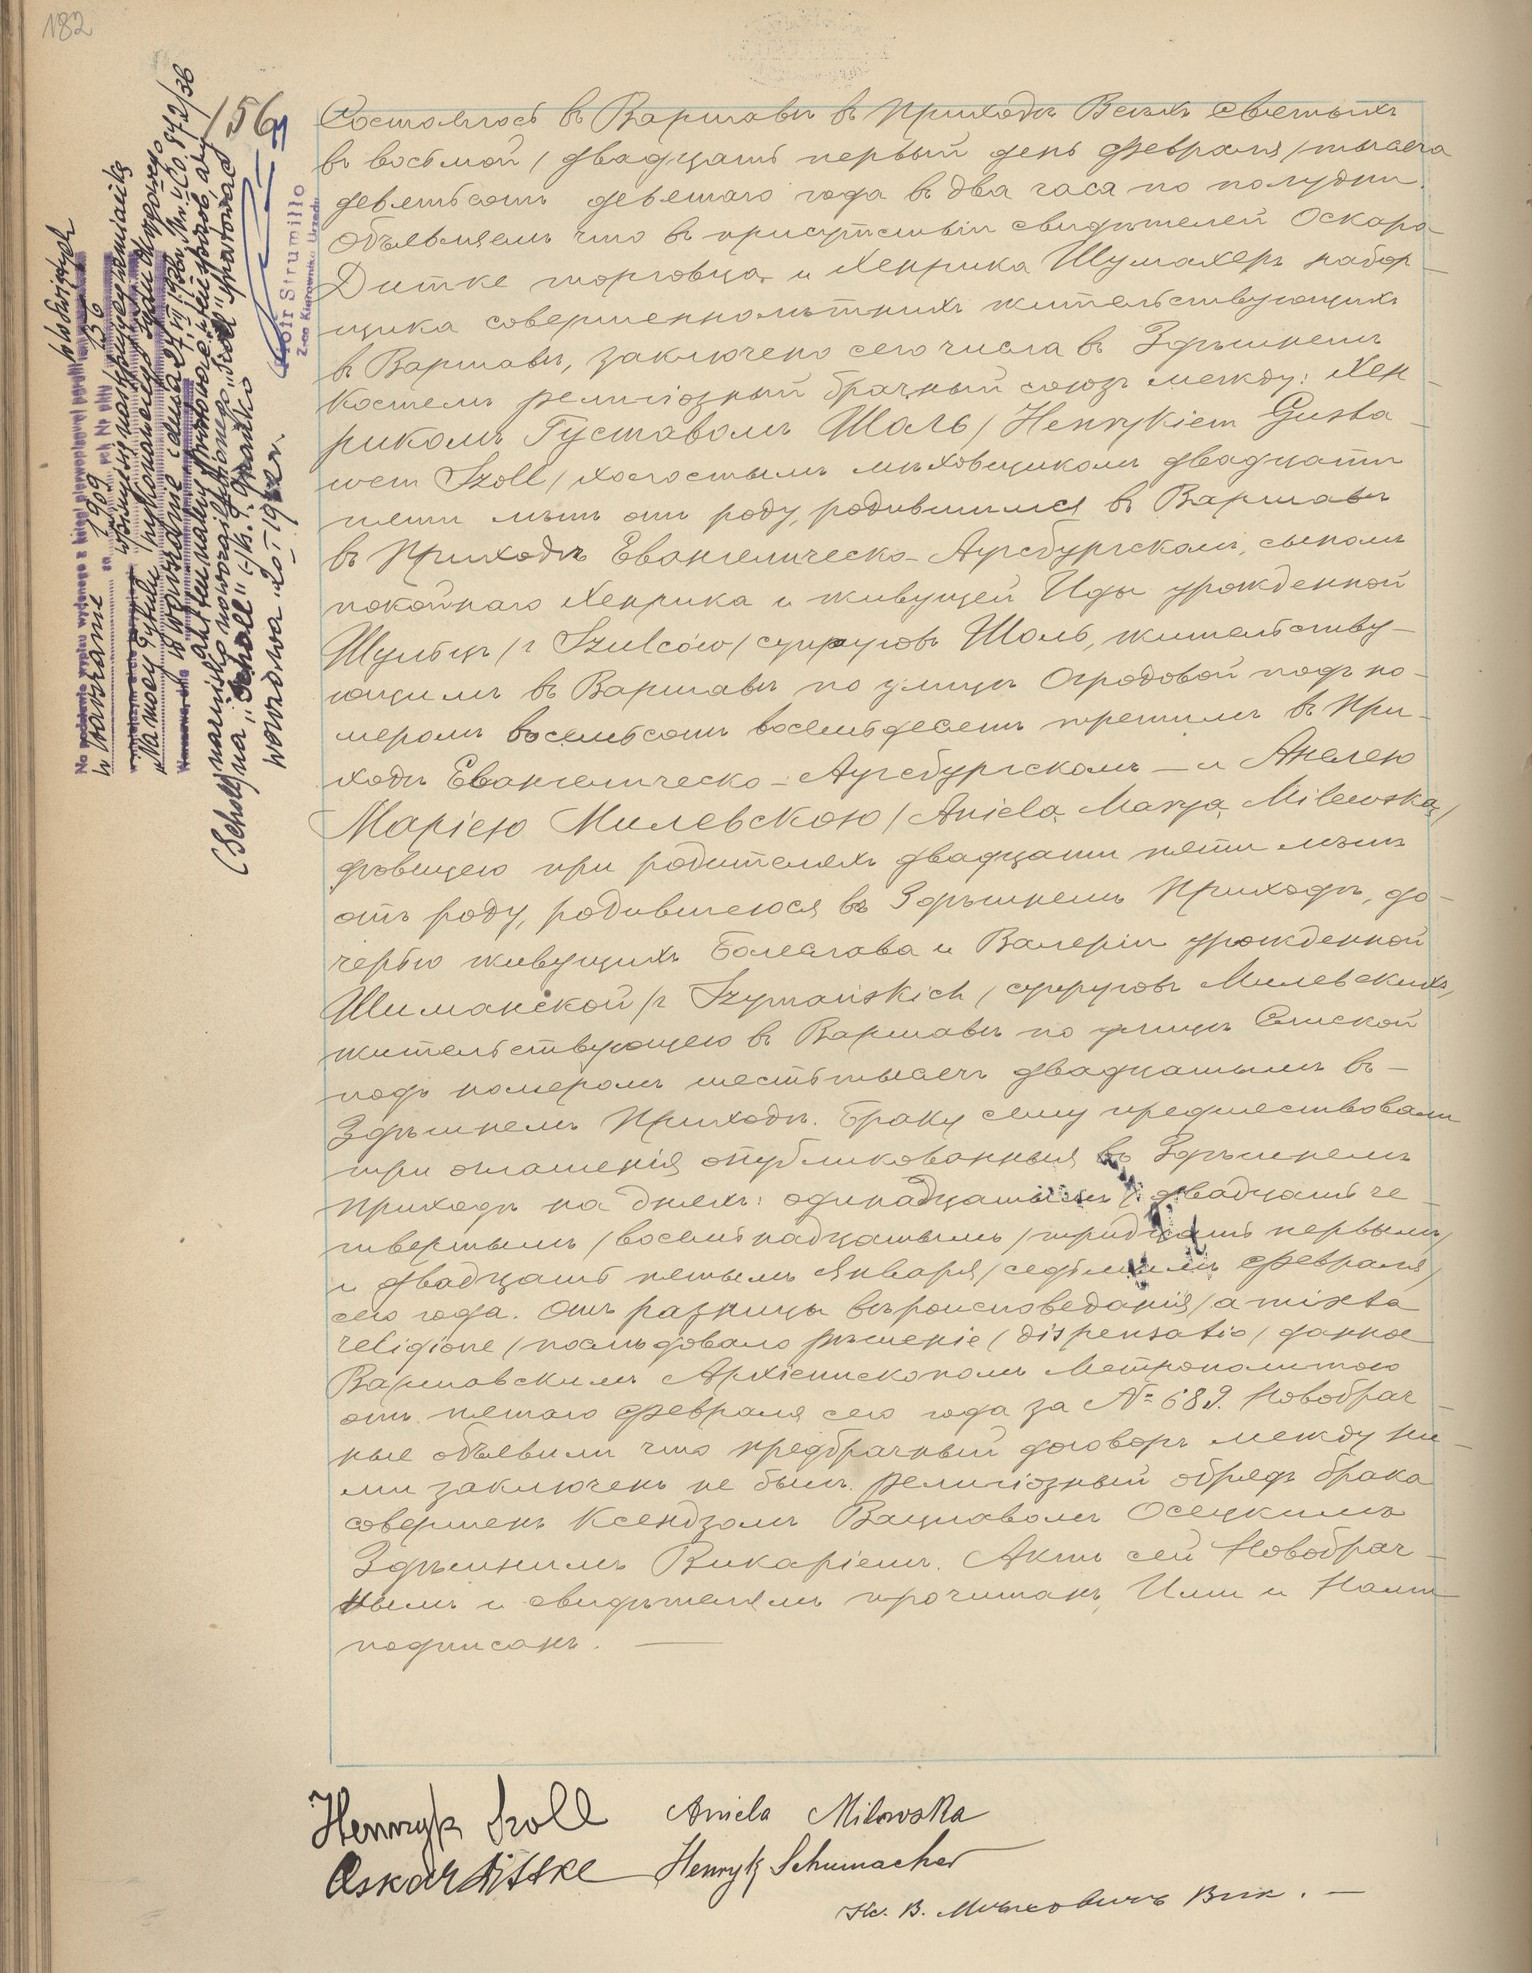 182
156
Состоялось въ Варшавѣ въ Приходѣ Всѣхъ Святыхъ
въ восьмой / двадцать первый день Февраля / тысяча
девятьсотъ девятаго года въ два часа по полудни.
Объявляемъ что въ присутствіи свидѣтелей Оскара
Дитке торговца и Хенрика Шумахеръ набор-
щика совершеннолѣтнихъ жительствующихъ
въ Варшавѣ, заключено сего числа въ Здѣшнемъ
Костелѣ религіозный брачный союзъ между: Хен-
рикомъ Густавомъ Шоль / Henrykiem Gusta-
wem Szoll / холостымъ мѣховщикомъ двадцати
пяти лѣтъ отъ роду, родившимся въ Варшавѣ
въ Приходѣ Евангелическо-Аугсбургскомъ, сыномъ
покойнаго Хенрика и живущей Иды урожденной
Шульцъ / z Szulców / супруговъ Шоль, жительству-
ющимъ въ Варшавѣ по улицѣ Огродовой подъ но-
меромъ восемьсотъ восемьдесятъ третимъ въ При-
ходѣ Евангелическо-Аугсбургскомъ — и Анелею
Маріею Милевскою / Aniela Marya Milewska /
дѣвицею при родителяхъ двадцати пяти лѣтъ
отъ роду, родившеюся въ Здѣшнемъ Приходѣ, до-
черью живущихъ Болеслава и Валеріи урожденной
Шиманской / z Szymańskich / супруговъ Милевскихъ,
жительствующею въ Варшавѣ по улицѣ Сліской
подъ номеромъ шесть тысячъ двадцатымъ въ —
Здѣшнемъ Приходѣ. Браку сему предшествовали
три оглашенія опубликованныя въ Здѣшнемъ
Приходѣ на дняхъ: одинадцатымъ / двадцать че-
твертымъ / восемьнадцатымъ / тридцать первымъ /
и двадцать пятымъ Января / седьмымъ Февраля /
сего года. Отъ разницы вѣроисповеданія / a mixta
religione / послѣдовало рѣшеніе / dispensatio / данное
Варшавскимъ Архіепископомъ Метрополитою
отъ пятаго Февраля сего года за № 689. Новобрач-
ные объявили что предбрачный договоръ между ни-
ми заключенъ не былъ. Религіозный обрядъ брака
совершенъ Ксендзомъ Вацлавомъ Осецкимъ
Здѣшнимъ Викаріемъ. Актъ сей Новобрач-
нымъ и свидѣтелямъ прочитанъ, Ими и Нами
подписанъ. —
Henryk Szoll Aniela Milewska
Oskar Dittke Henryk Schumacher
Кс. В. Вик. —
W. Świętych
w Warszawie 1909 156
"Na mocy tytułu wykonawczego Sądu Okręgowego
w Warszawie
nazwisko nowozaślubionego "Szoll" sprostować
na "Scholl"
Warszawa
Strumiłło